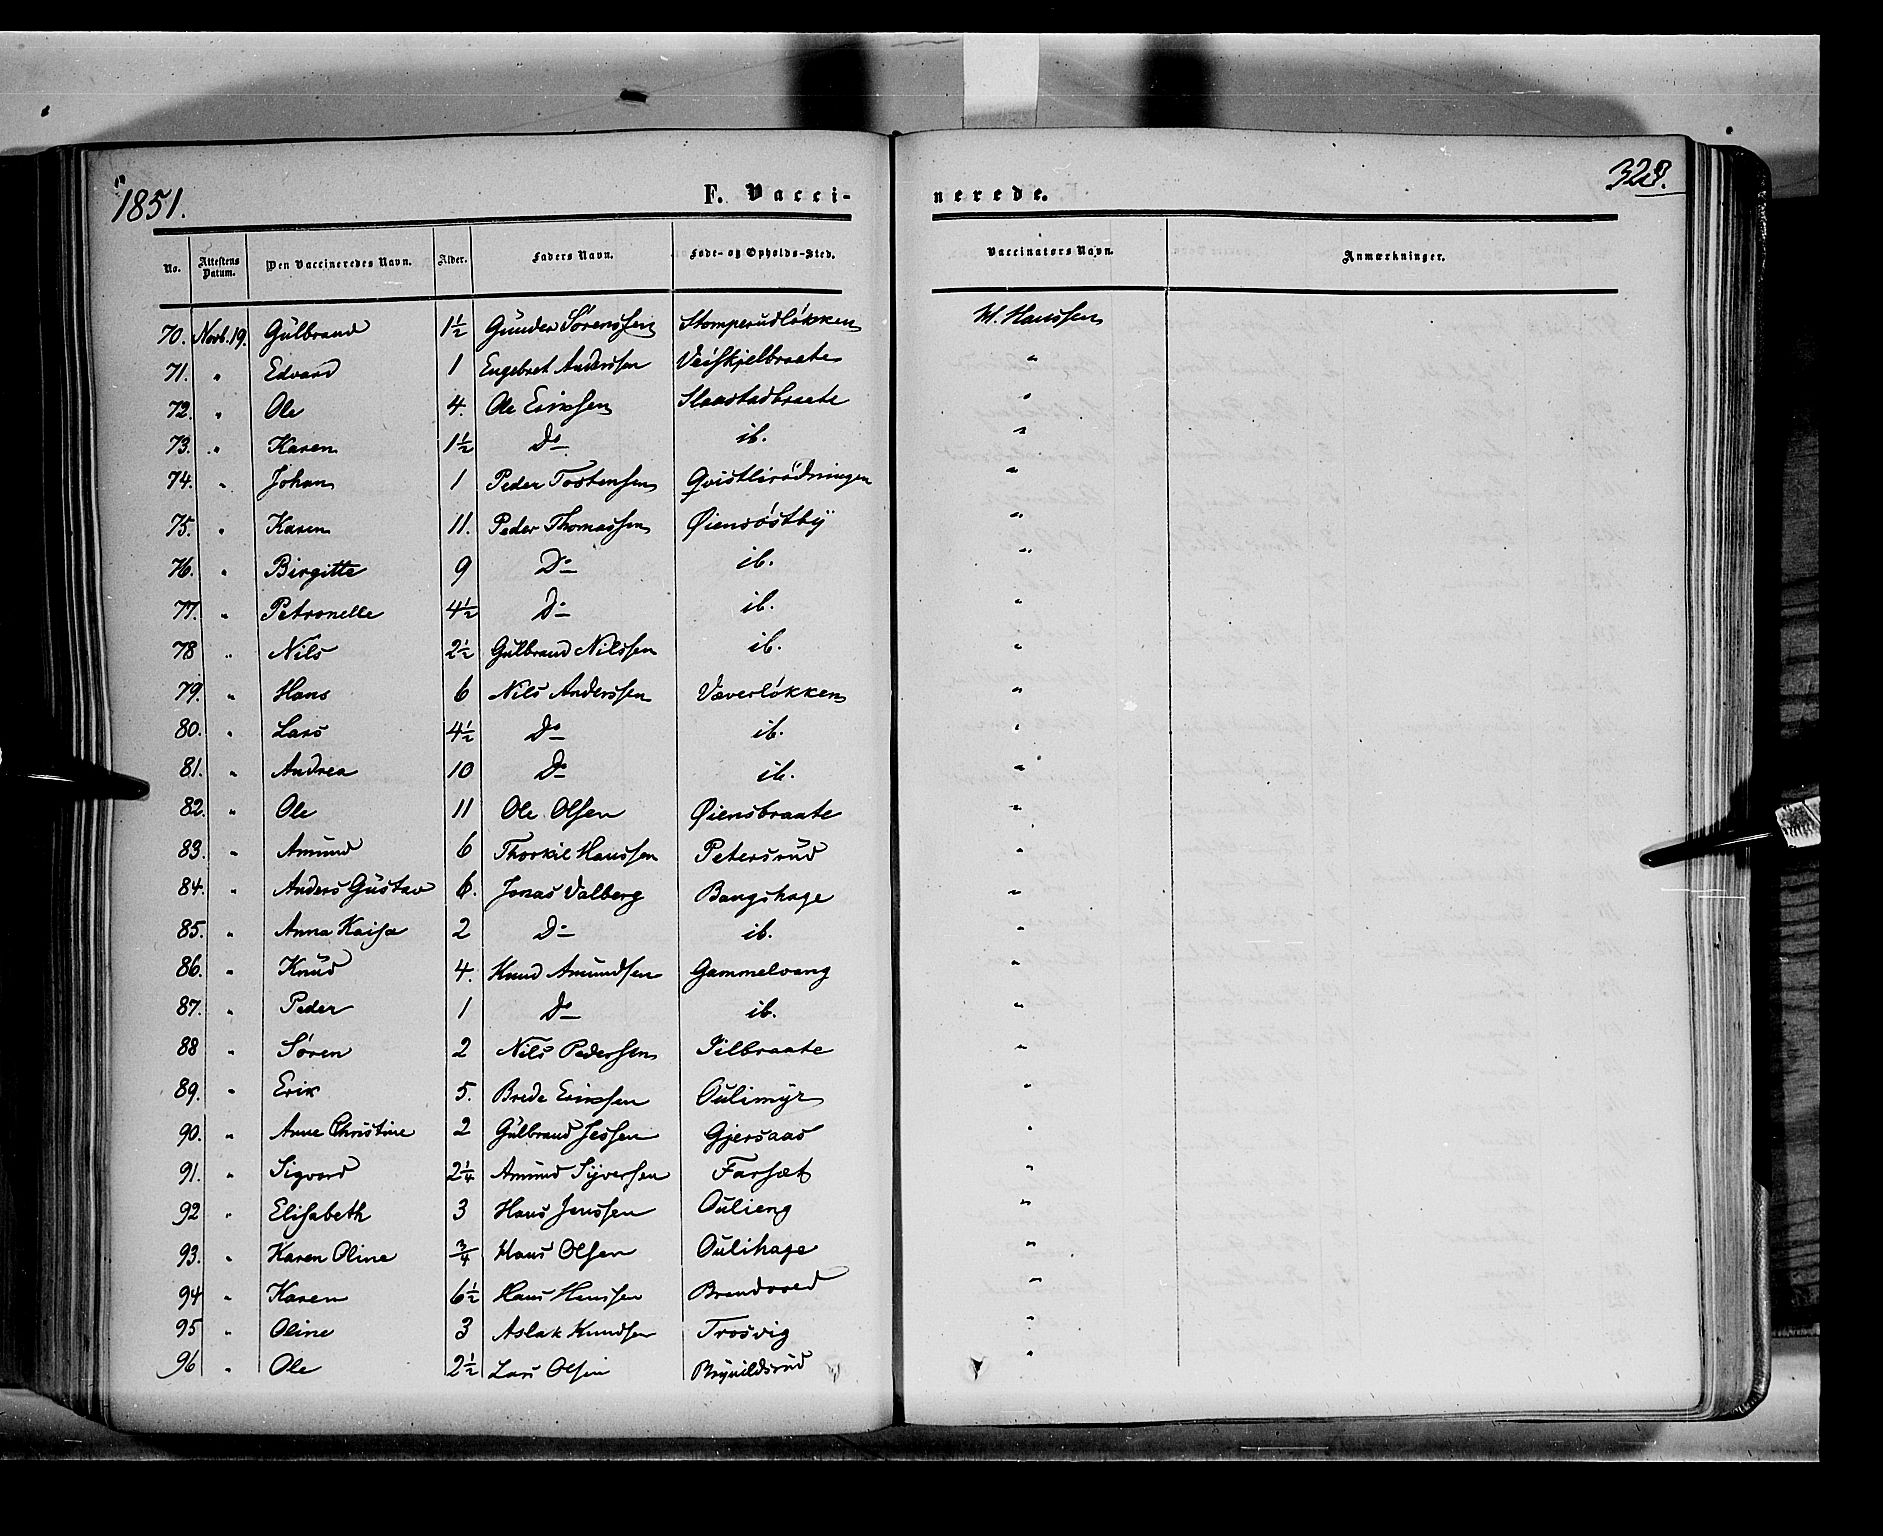 1851. F. Vacci- nerede. 323.
No. Attestens Datum. Den Vaccineredes Navn. Alder. Faders Navn. Føde- og Opholds-Sted. Vaccinators Navn. Anmærkninger.
70. Novb. 19. Gulbrand 1½ Gunder Sørenssen Stomperudløkken M. Hanssen
71. " Edvard 1 Engebret Anderssen Veiskjelbraate "
72. " Ole 4. Ole Erikssen Slaastadbraate "
73. " Karen 1½ Do ib. "
74. " Johan 1 Peder Tostensen Qvistlirødningen "
75. " Karen 11. Peder Thomassen Øiensøstby "
76. " Birgitte 9 Do ib. "
77. " Petronelle 4½ Do ib. "
78 " Nils 2½ Gulbrand Nilssen ib. "
79. " Hans 6 Nils Anderssen Væverløkken "
80. " Lars 4½ Do ib. "
81. " Andrea 10 Do ib. "
82. " Ole 11 Ole Olsen Øiensbraate "
83. " Amund 6 Thorkil Hanssen Petersrud "
84. " Anders Gustav 6. Jonas Valberg Bangshage "
85. " Anna Kaisa 2 Do ib. "
86. " Knud 4. Knud Amundsen Gammelvang "
87. " Peder 1 Do ib. "
88 " Søren 2 Nils Pederssen Pilbraate "
89. " Erik 5. Brede Erikssen Oulimyr "
90. " Anne Christine 2 Gulbrand Jessen Gjersaas "
91. " Sigvard 2¼ Amund Syversen Farsæt "
92 " Elisabeth 3 Hans Jenssen Oulieng "
93. " Karen Oline ¾ Hans Olsen Oulihage "
94 " Karen 6½ Hans Hanssen Brendvoed "
95 " Oline 3 Aslak Knudsen Trosvig "
96 " Ole 2½ Lars Olsen Brynildsrud "